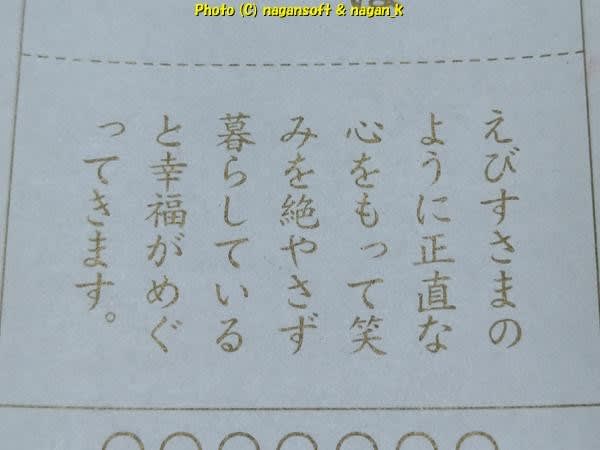 Photo (C) nagansoft & nagan_k
えびすさまの
ように正直な
心をもって笑
みを絶やさず
暮らしている
と幸福がめぐ
ってきます。